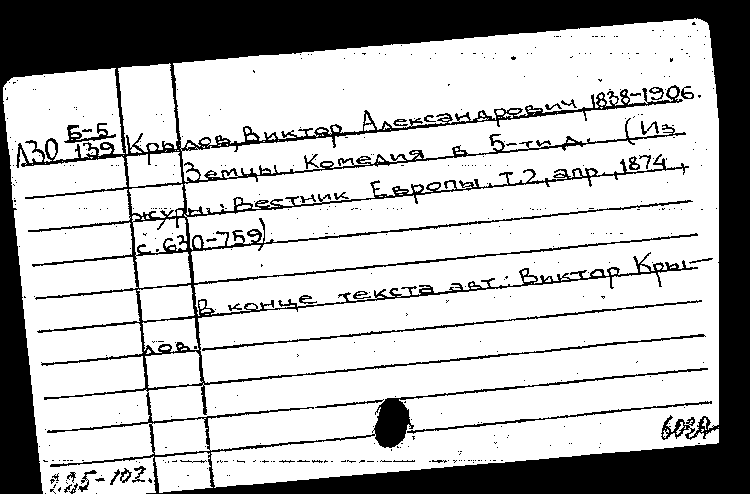 Б-5
Л30 139 Крылов, Виктор Александрович, 1838-1906.
Земцы. Комедия в 5-ти д. (Из
журн.: Вестник Европы. Т.2, апр., 1874,
с. 630-759).
В конце текста авт.: Виктор Кры-
лов.